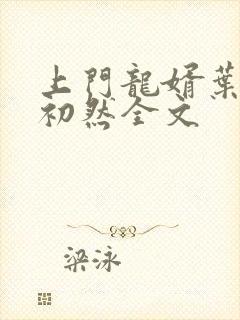 上門龍婿葉
初然全文
梁泳